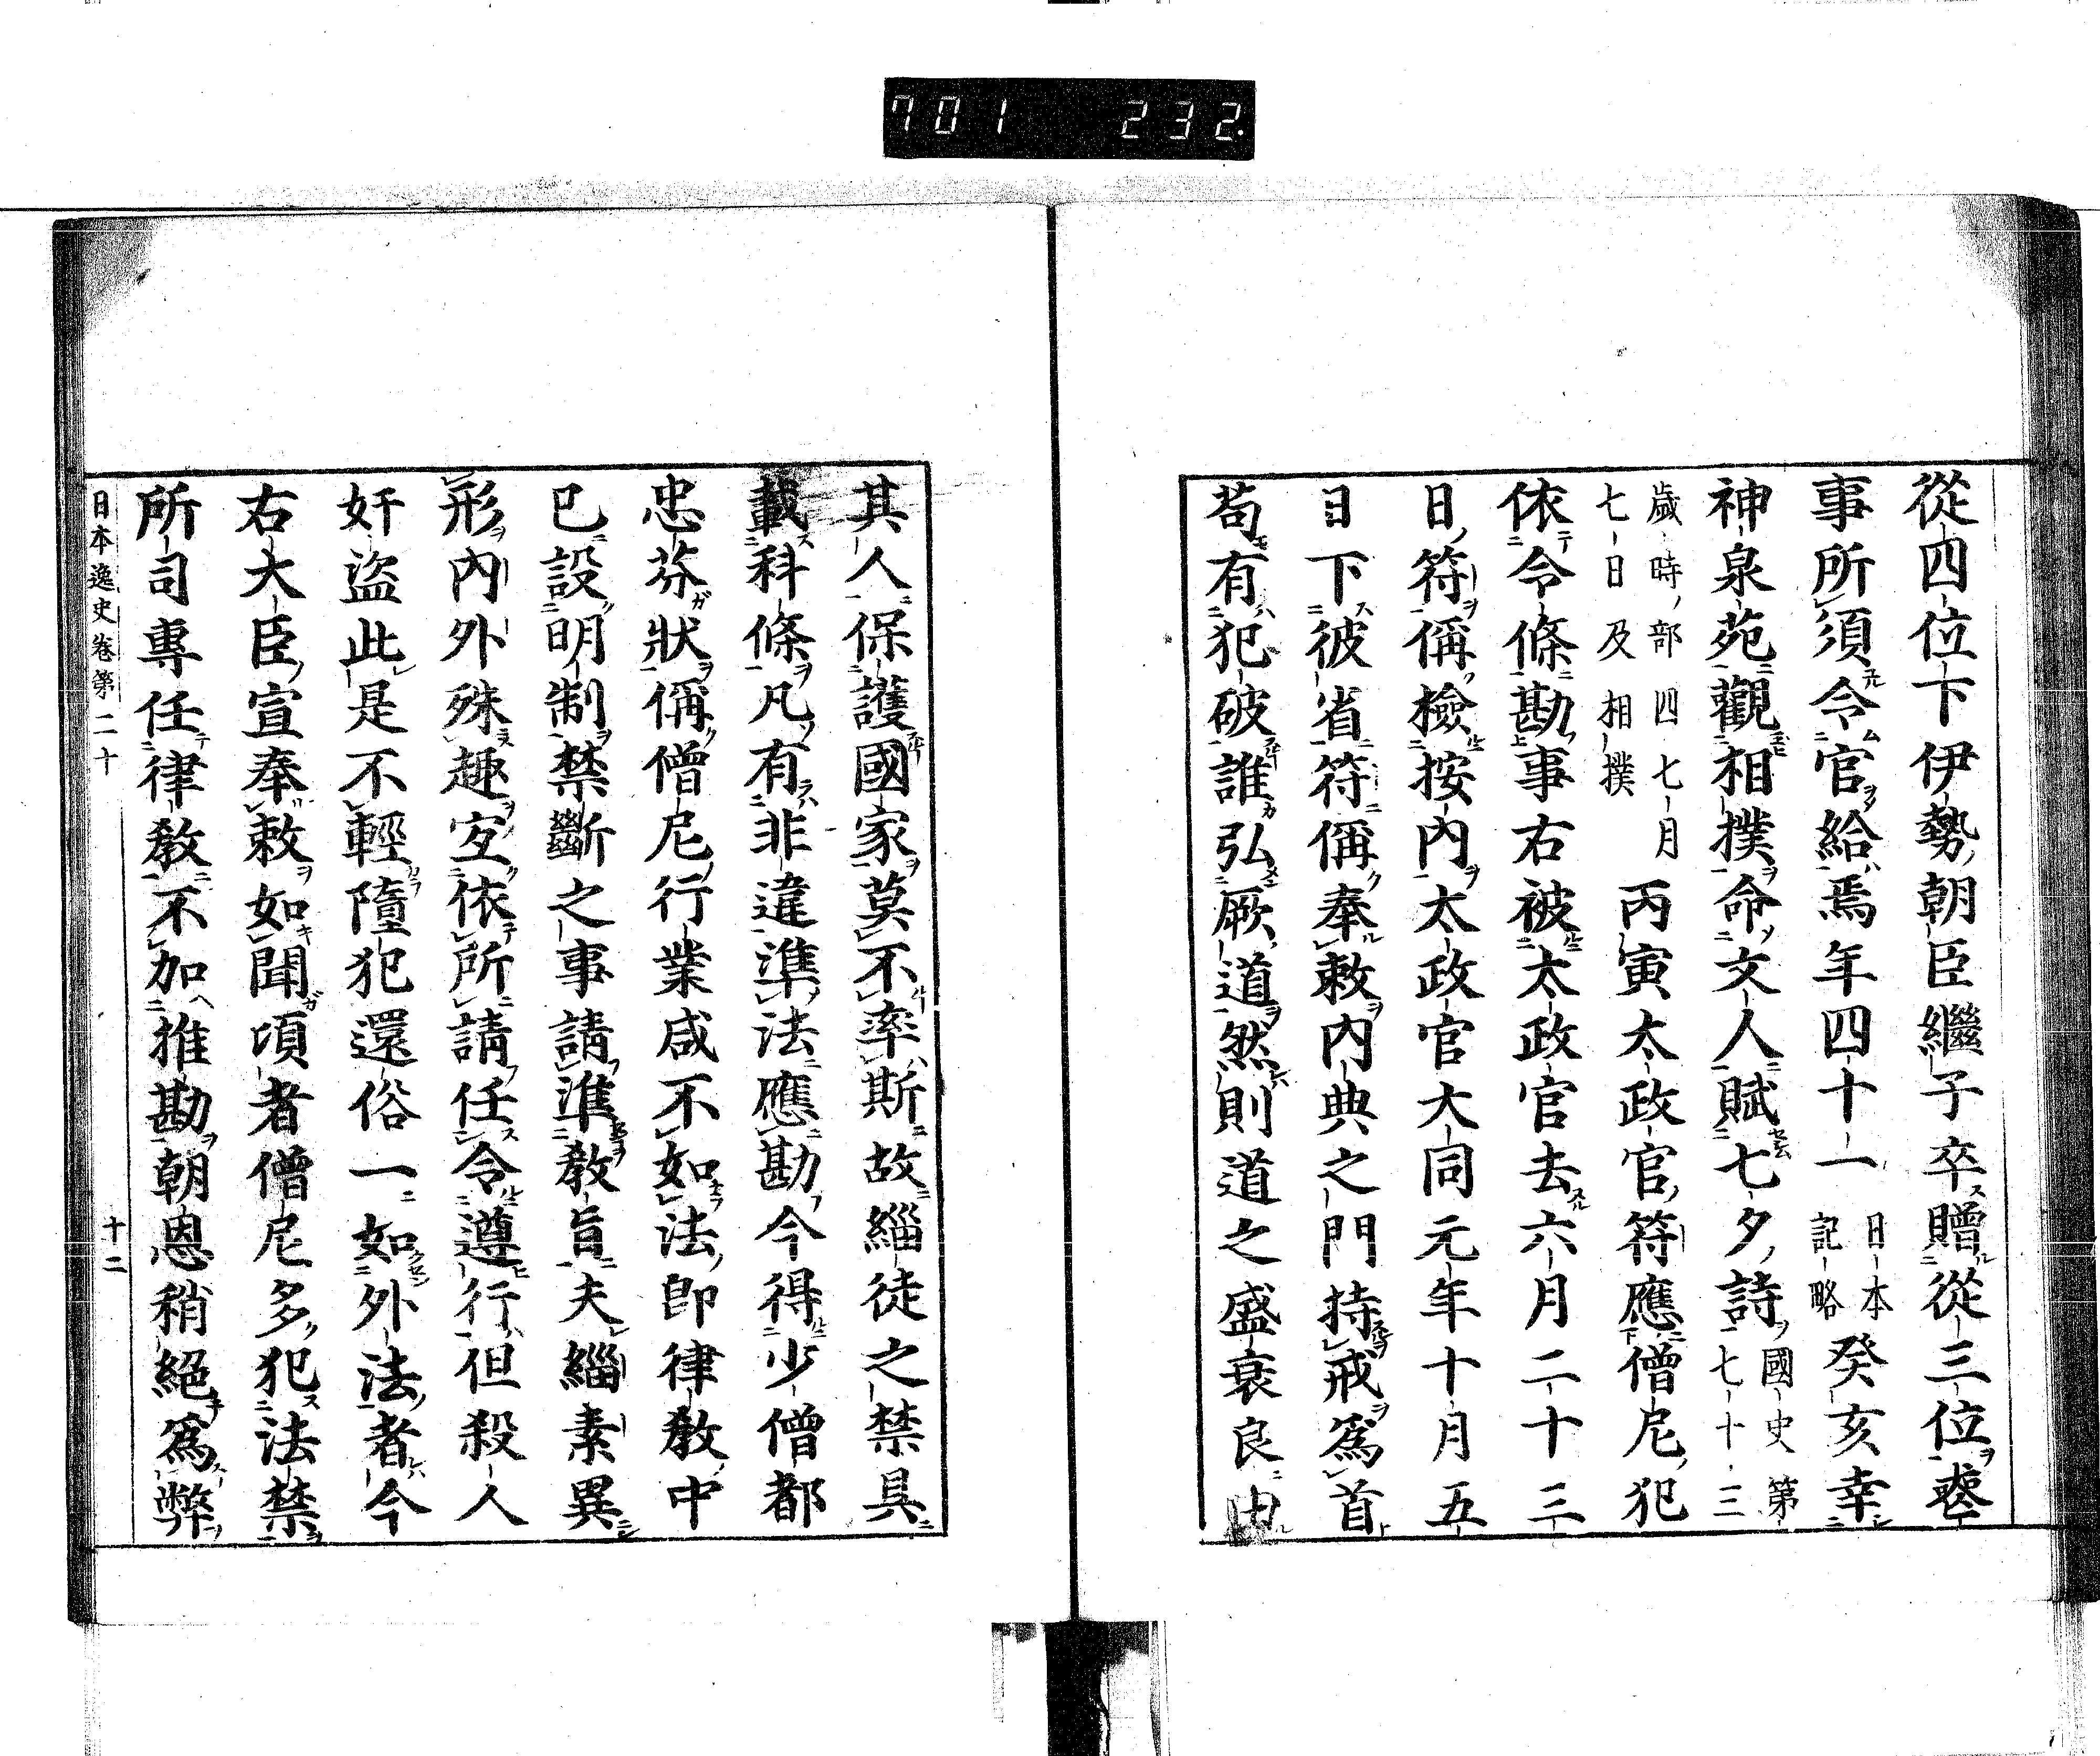 701 232.
從四位下伊勢朝臣繼子卒贈從三位喪
事所須令官給焉年四十一日本記略癸亥幸
神泉苑觀相撲命文人賦七夕詩國史第七十三
歲時部四七月七日及相撲丙寅太政官符應僧尼犯
依令條勘事右被太政官去六月二十三
日符偁檢按內太政官大同元年十月五
日下彼省符偁奉敕內典之門持戒爲首
苟有犯破誰弘厥道然則道之盛衰良由
其人保護國家莫不率斯故緇徒之禁具
載科條凡有非違準法應勘今得少僧都
忠芬狀偁僧尼行業咸不如法卽律敎中
已設明制禁斷之事請準敎旨夫緇素異
形內外殊趣宐依所請任令遵行但殺人
奸盜此是不輕隨犯還俗一如外法者今
右大臣宣奉敕如聞項者僧尼多犯法禁
所司專任律敎不加推勘朝恩稍絕爲弊
日本逸史卷第二十
十二